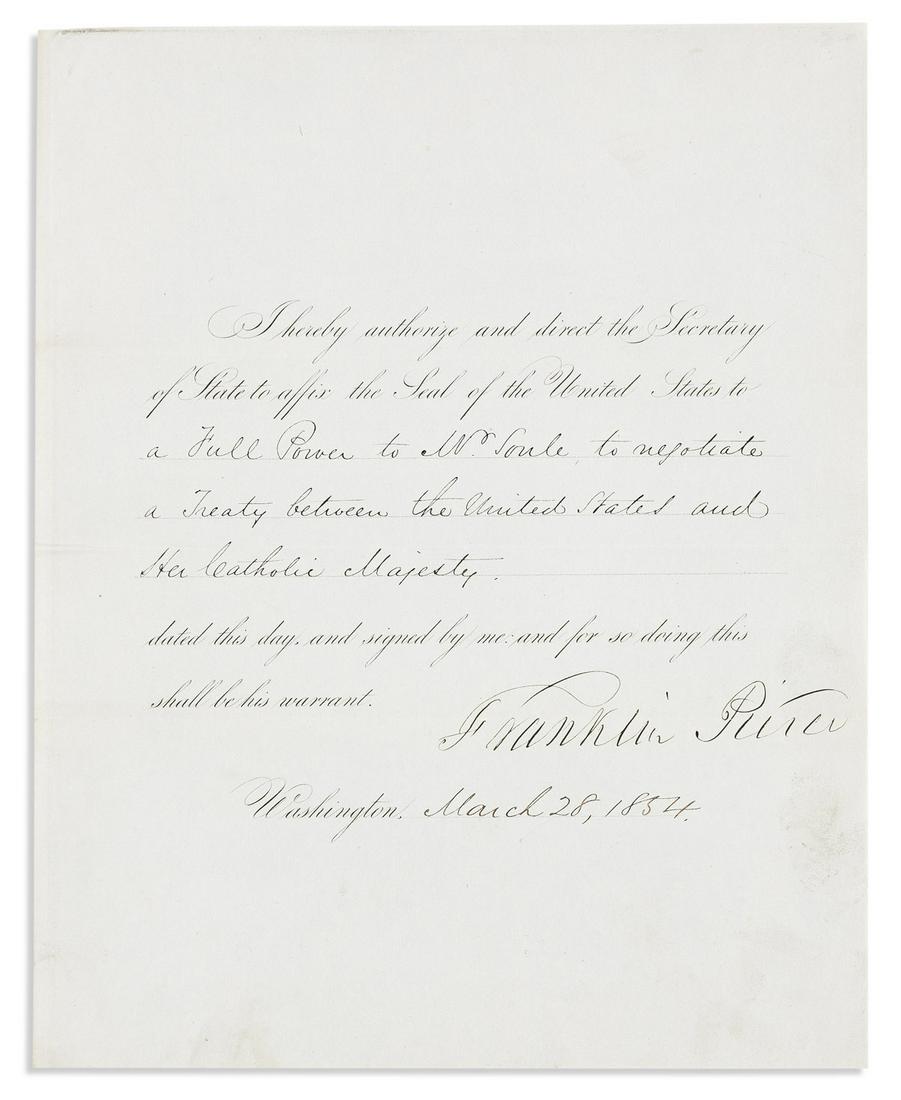 I hereby authorize and direct the Secretary
of State to affix the Seal of the United States to
a Full Power to Mr. Soule, to negotiate
a Treaty between the United States and
Her Catholic Majesty.
dated this day, and signed by me: and for so doing this
shall be his warrant.
Franklin Pierce
Washington, March 28, 1854.